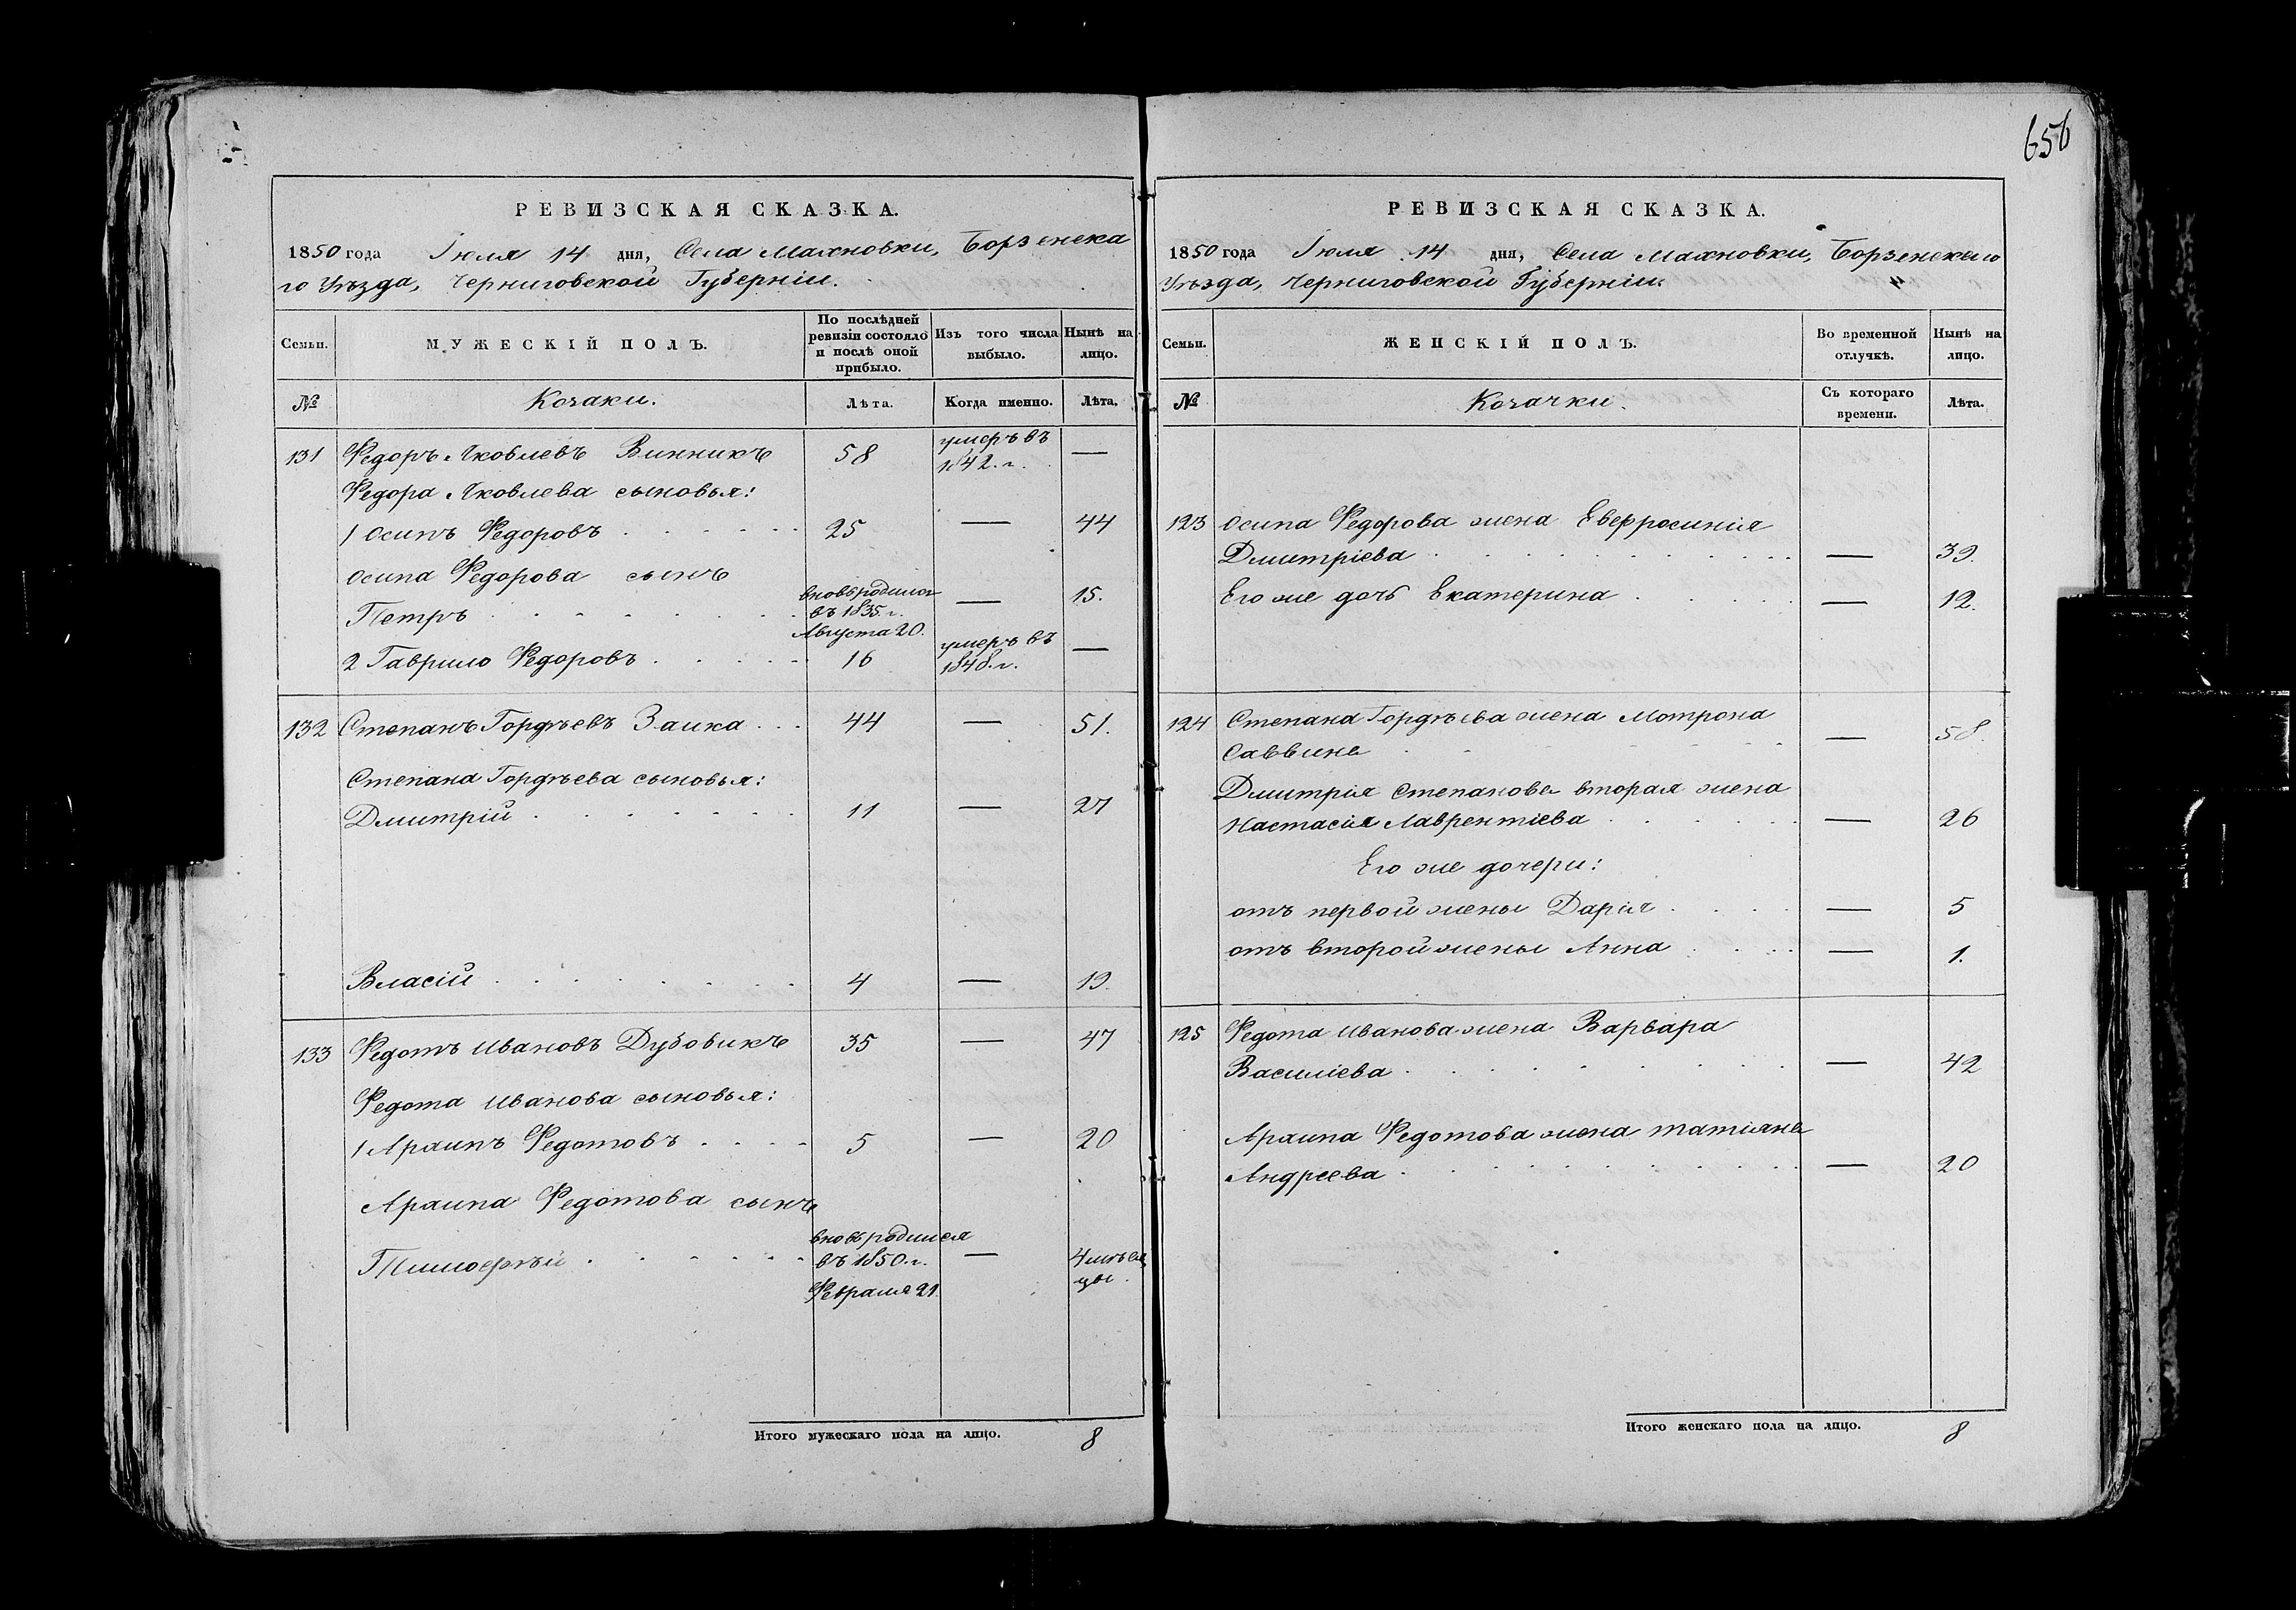 656
РЕВИЗСКАЯ СКАЗКА.
1850 года Іюля 14 дня, Села Махновки, Борзенска
го Уѣзда, Черниговской Губерніи.
Семьи. МУЖЕСКІЙ ПОЛЪ. По послѣдней ревизіи состояло и послѣ оной прибыло. Изъ того числа выбыло. Нынѣ на лицо.
№ Козаки. Лѣта. Когда именно. Лѣта.
131 Федоръ Яковлевъ Винникъ 58 умеръ въ 1842. г. —
Федора Яковлева сыновья:
1 Осипъ Федоровъ 25 — 44
Осипа Федорова сынъ
Петръ вновь родился въ 1835. г. Августа 20. — 15.
2 Гаврило Федоровъ 16 умеръ въ 1848. г. —
132 Степанъ Гордѣевъ Заика 44 — 51.
Степана Гордѣева сыновья:
Дмитрій 11 — 27
Власій 4 — 19.
133 Федотъ Ивановъ Дубовикъ 35 — 47
Федота Иванова сыновья:
1 Архипъ Федотовъ 5 — 20
Архипа Федотова сынъ
Тимофѣй вновь родился въ 1850. г. Февраля 21. — 4 мѣся
цы.
Итого мужескаго пола на лицо. 8
РЕВИЗСКАЯ СКАЗКА.
1850 года Іюля 14 дня, Села Махновки, Борзенскаго
Уѣзда, Черниговской Губерніи.
Семьи. ЖЕНСКІЙ ПОЛЪ. Во временной отлучкѣ. Нынѣ на лицо.
№ Козачки. Съ котораго времени. Лѣта.
123 Осипа Федорова жена Евфросинія
Дмитріева — 39.
Его же дочь Екатерина — 12.
124 Степана Гордѣева жена Мотрона
Саввина — 58.
Дмитрія Степанова вторая жена
Настасія Лаврентіева — 26
Его же дочери:
отъ первой жены Дарія — 5
отъ второй жены Анна — 1.
125 Федота Иванова жена Варвара
Василіева — 42
Архипа Федотова жена Татіяна
Андреева — 20
Итого женскаго пола на лицо. 8